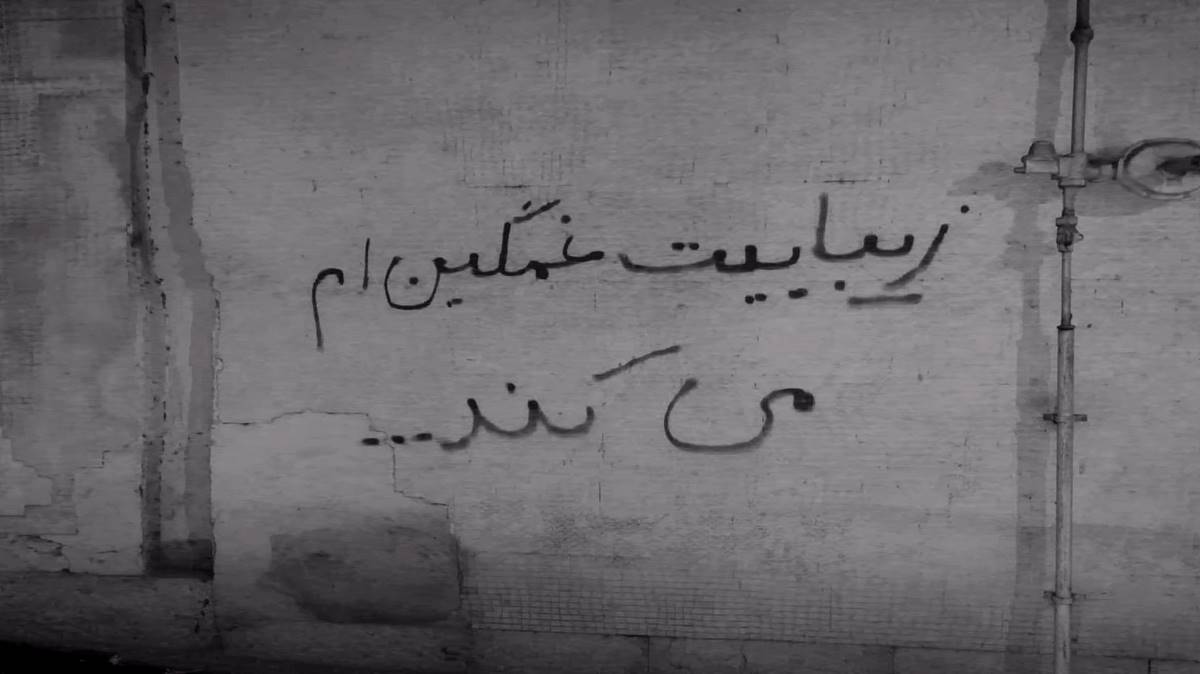 زیباییت غمگین ام
می کند...